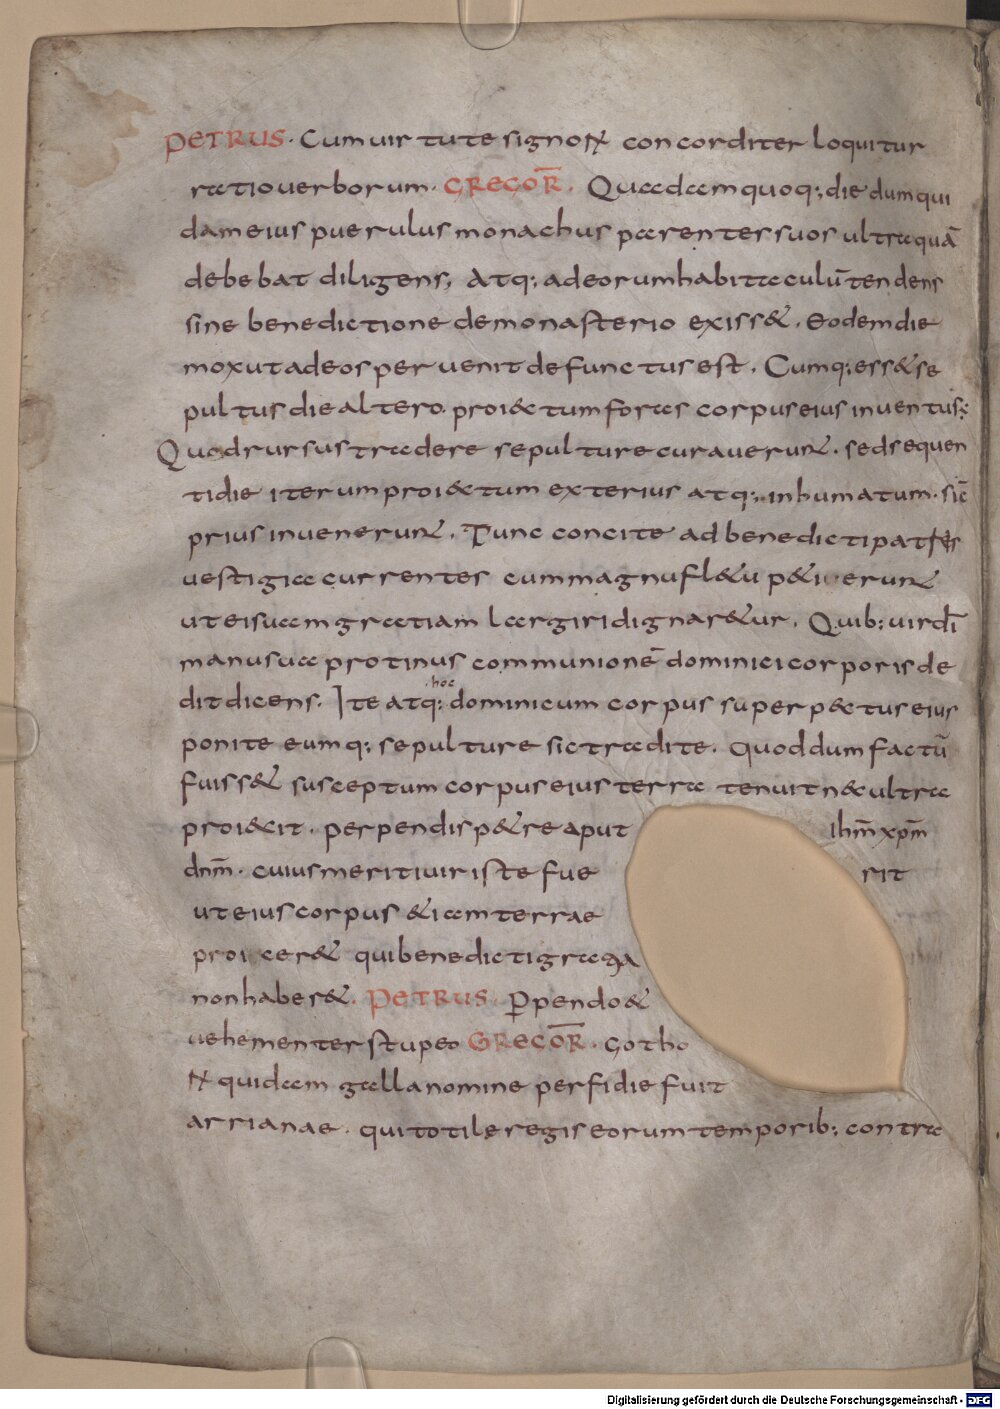 PETRUS · Cum uirtute signoꝝ concorditer loquitur
ratio uerborum · GREGOR̅ · Quadam quoq; die dum qui
dam eius puerulus monachus parentes suos ultra quā
debebat diligens; Atq; ad eorum habitaculū tendens
sine benedictione de monasterio exiss& . Eodem die
mox ut ad eos peruenit defunctus est . Cumq; ess& se
pultus die altero proiectum foras corpus eius inuentus;
Quod rursus tradere sepulture curauerunt . sed sequen
ti die iterum proiectum exterius atq; inhumatum · sic̄
prius inuenerunt . Tunc concite ad benedicti patris
uestigia currentes cum magnu fl&u p&iuerunt
ut ei suam gratiam largiri dignar&ur . Quib; uir dī
manu sua protinus communionē dominici corporis de
dit dicens . Ite atq; hoc dominicum corpus super pectus eius
ponite eumq; sepulture sic tradite . Quod dum factū
fuiss& susceptum corpus eius terra tenuit nec ultra
proiecit . perpendis p&re aput ihm̅ xpm̅
dnm̅ . cuius meriti uir iste fue rit
ut eius corpus &iam terrae
proicer& qui benedicti gratia
non haber& . PETRUS Ꝑpendo &
uehementer stupeo GREGOR̅ . Gotho
ꝝ quidam galla nomine perfidie fuit
arrianae . qui totile regis eorum temporib; contra
Digitalisierung gefördert durch die Deutsche Forschungsgemeinschaft - DFG